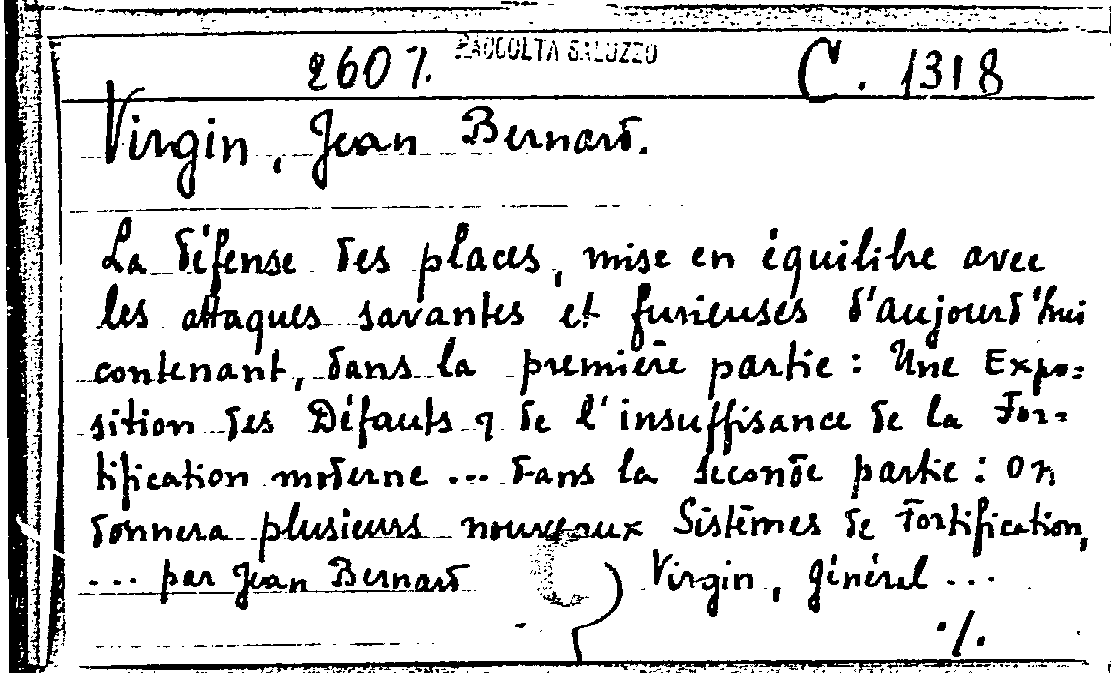 2607. RACCOLTA SALUZZO C. 1318
Virgin, Jean Bernard.
La défense des places, mise en équilibre avec
les attaques savantes et furieuses d'aujourd'hui
contenant, dans la première partie : Une Expo=
sition des Défauts & de l'insuffisance de la For=
tification moderne ... dans la seconde partie : On
donnera plusieurs nouveaux Sistêmes de Fortification,
... par Jean Bernard Virgin, général ...
./.